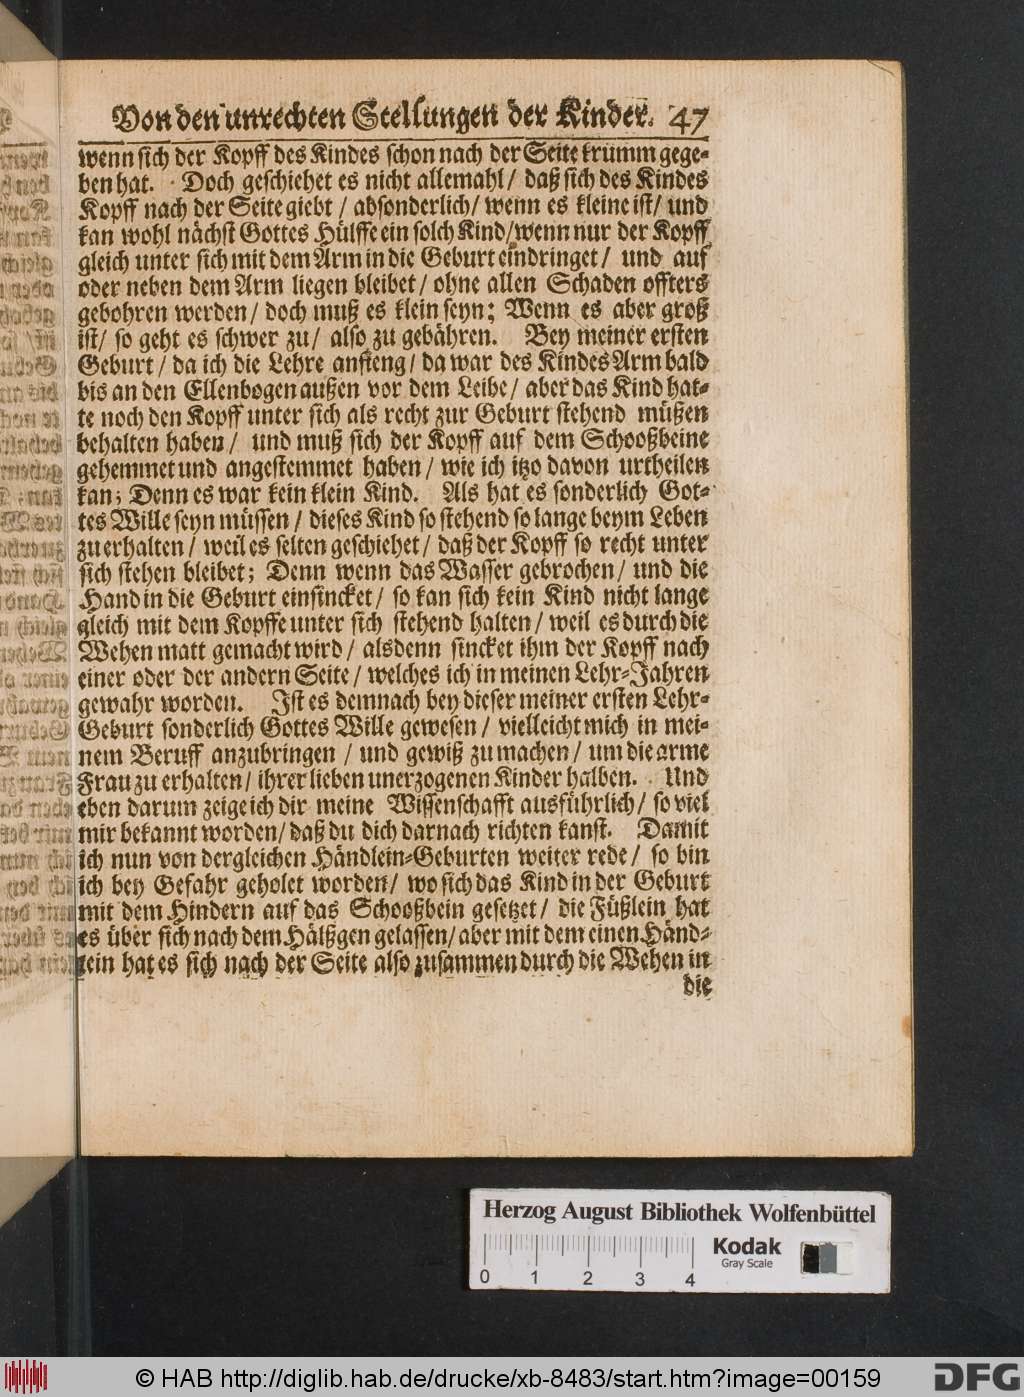 Von den unrechten Stellungen der Kinder. 47
wenn sich der Kopff des Kindes schon nach der Seite krumm gege-
ben hat. Doch geschiehet es nicht allemahl / daß sich des Kindes
Kopff nach der Seite giebt / absonderlich / wenn es kleine ist / und
kan wohl nächst Gottes Hülffe ein solch Kind / wenn nur der Kopff
gleich unter sich mit dem Arm in die Geburt eindringet / und auf
oder neben dem Arm liegen bleibet / ohne allen Schaden offters
gebohren werden / doch muß es klein seyn; Wenn es aber groß
ist / so geht es schwer zu / also zu gebähren. Bey meiner ersten
Geburt / da ich die Lehre anfieng / da war des Kindes Arm bald
bis an den Ellenbogen außen vor dem Leibe / aber das Kind hat-
te noch den Kopff unter sich als recht zur Geburt stehend müßen
behalten haben / und muß sich der Kopff auf dem Schooßbeine
gehemmet und angestemmet haben / wie ich itzo davon urtheilen
kan; Denn es war kein klein Kind. Als hat es sonderlich Got-
tes Wille seyn müssen / dieses Kind so stehend so lange beym Leben
zu erhalten / weil es selten geschiehet / daß der Kopff so recht unter
sich stehen bleibet; Denn wenn das Wasser gebrochen / und die
Hand in die Geburt einsincket / so kan sich kein Kind nicht lange
gleich mit dem Kopffe unter sich stehend halten / weil es durch die
Wehen matt gemacht wird / alsdenn sincket ihm der Kopff nach
einer oder der andern Seite / welches ich in meinen Lehr-Jahren
gewahr worden. Ist es demnach bey dieser meiner ersten Lehr-
Geburt sonderlich Gottes Wille gewesen / vielleicht mich in mei-
nem Beruff anzubringen / und gewiß zu machen / um die arme
Frau zu erhalten / ihrer lieben unerzogenen Kinder halben. Und
eben darum zeige ich dir meine Wissenschafft ausführlich / so viel
mir bekannt worden / daß du dich darnach richten kanst. Damit
ich nun von dergleichen Händlein-Geburten weiter rede / so bin
ich bey Gefahr geholet worden / wo sich das Kind in der Geburt
mit dem Hindern auf das Schooßbein gesetzet / die Füßlein hat
es über sich nach dem Hälßgen gelassen / aber mit dem einen Händ-
lein hat es sich nach der Seite also zusammen durch die Wehen in
die
Herzog August Bibliothek Wolfenbüttel
Kodak
Gray Scale
0 1 2 3 4
© HAB http://diglib.hab.de/drucke/xb-8483/start.htm?image=00159
DFG